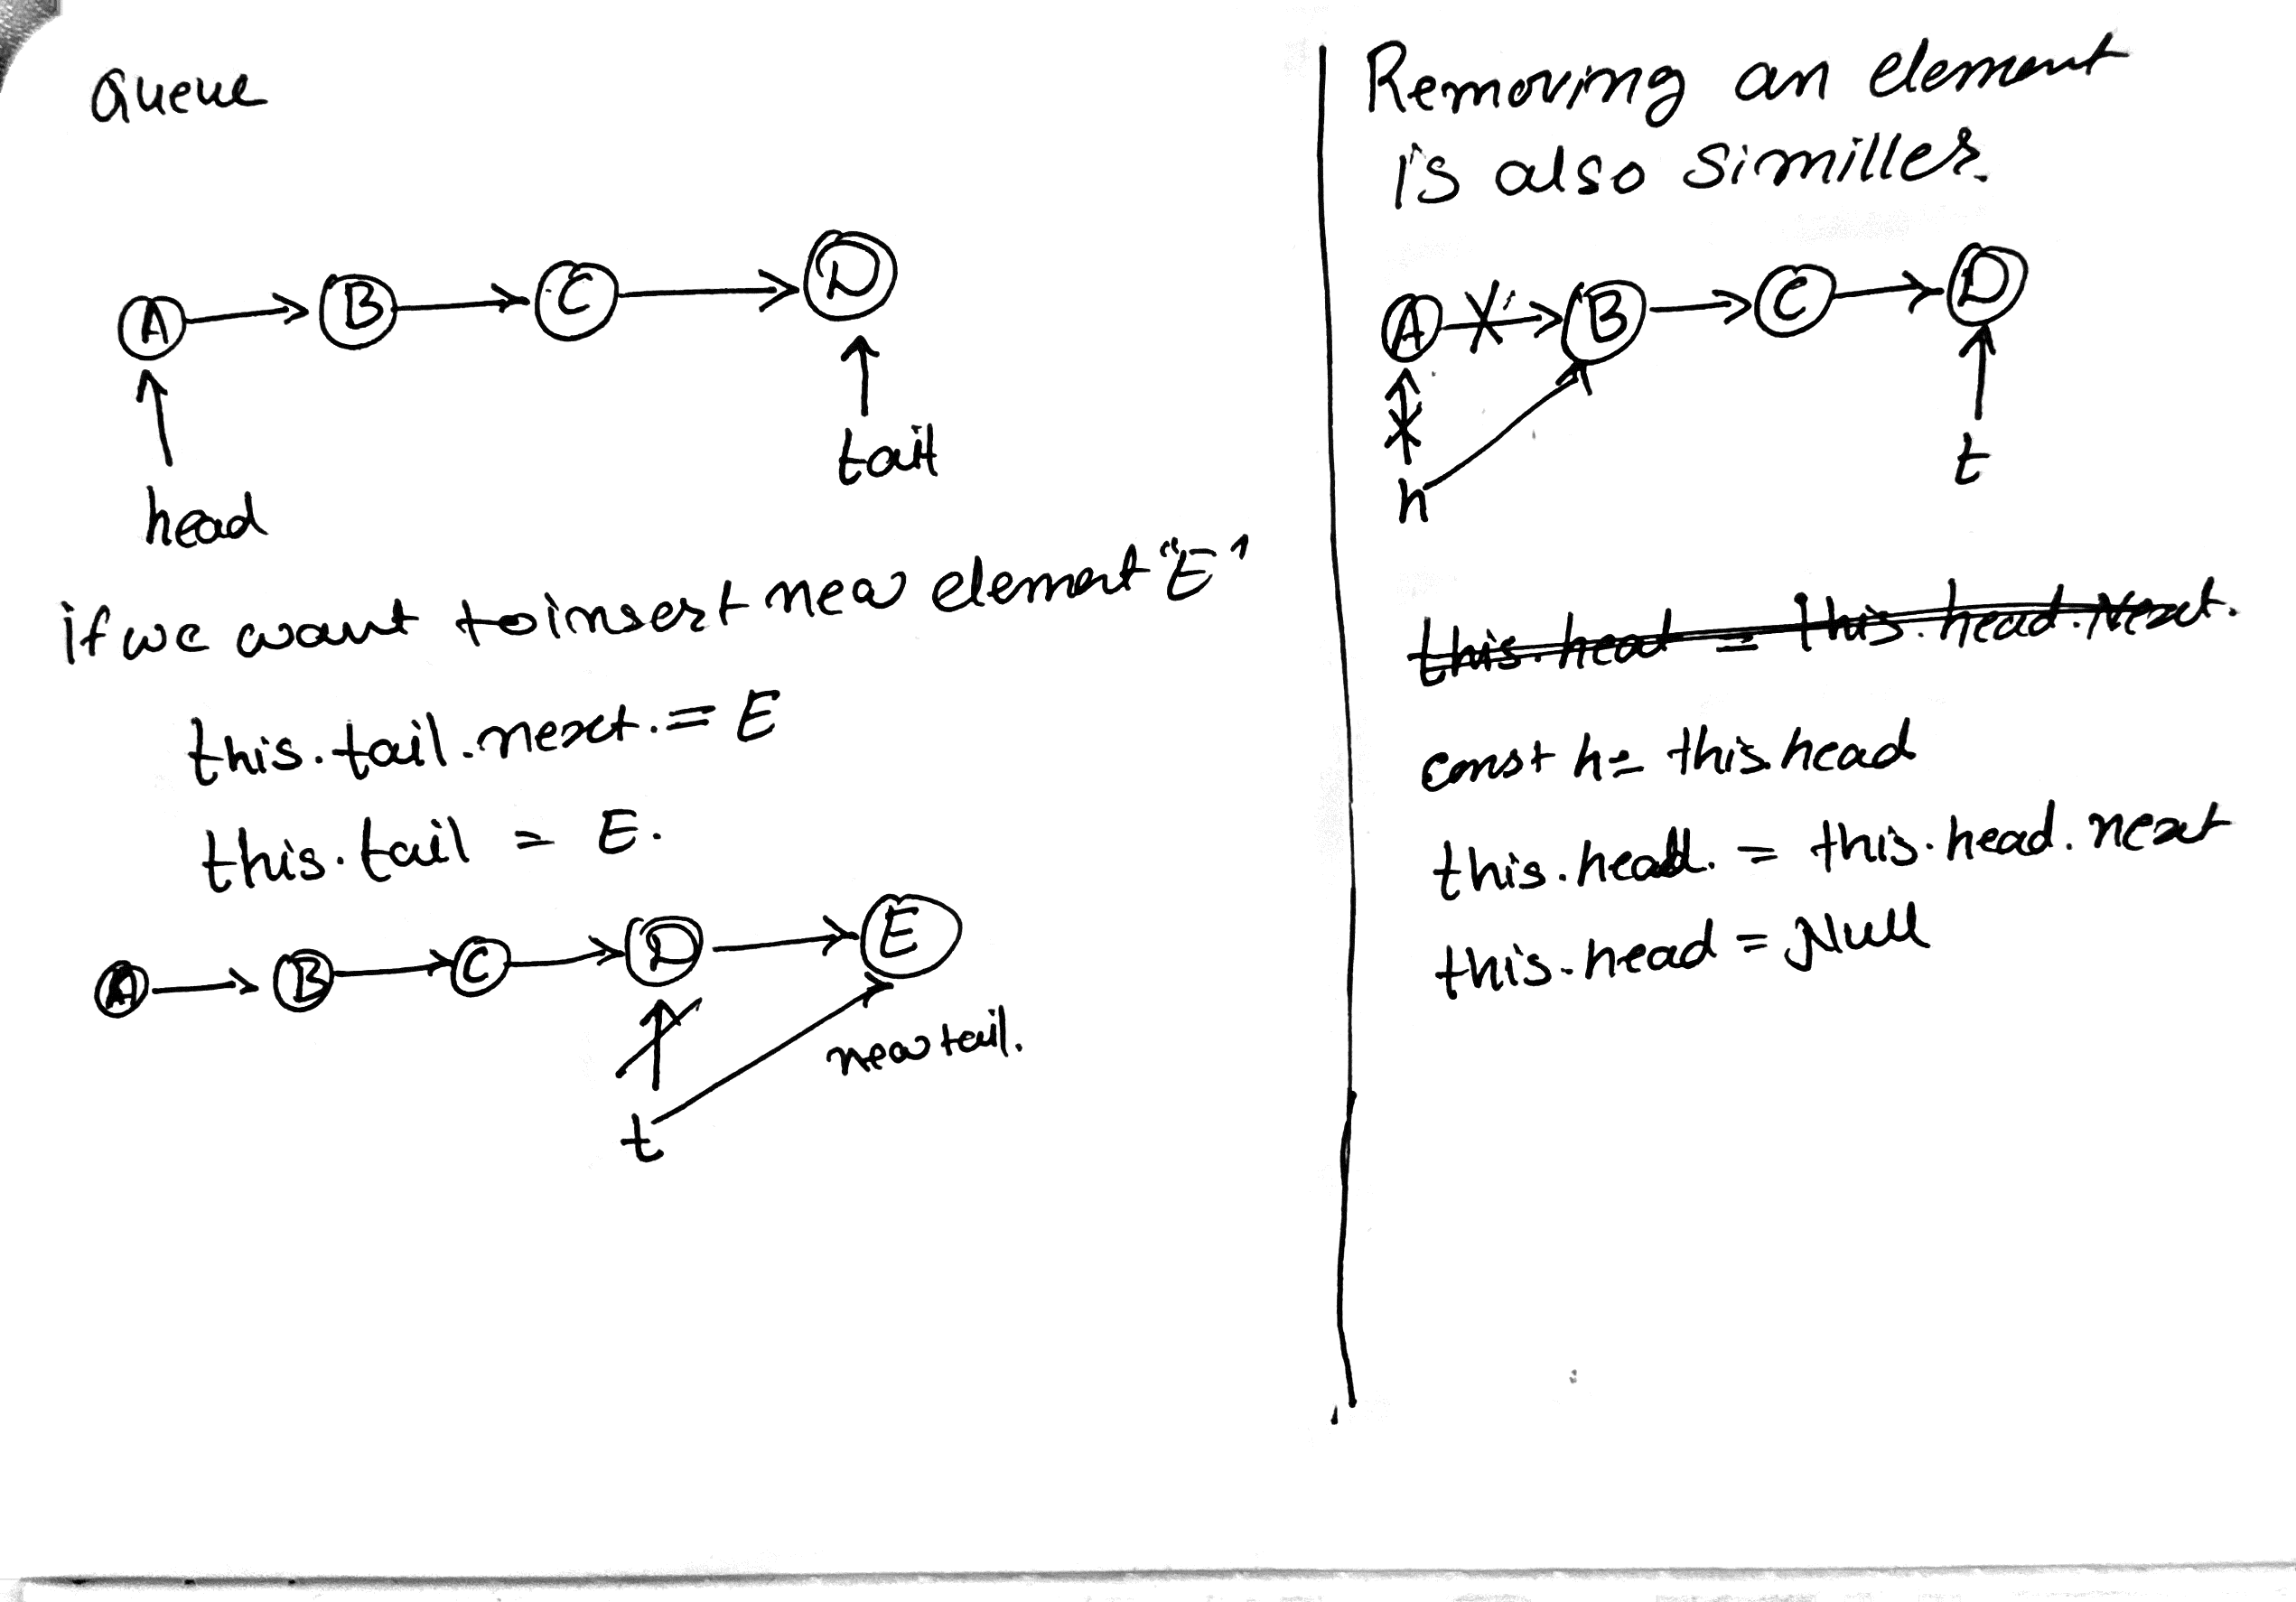 Queue
A B C D
head
tail
if we want to insert new element "E"
this.tail.next. = E
this.tail = E.
A B C D E
t
new tail.
Removing an element
is also similler.
A B C D
h
t
this.head = this.head.Next.
const h = this.head
this.head. = this.head.next
this.head = Null